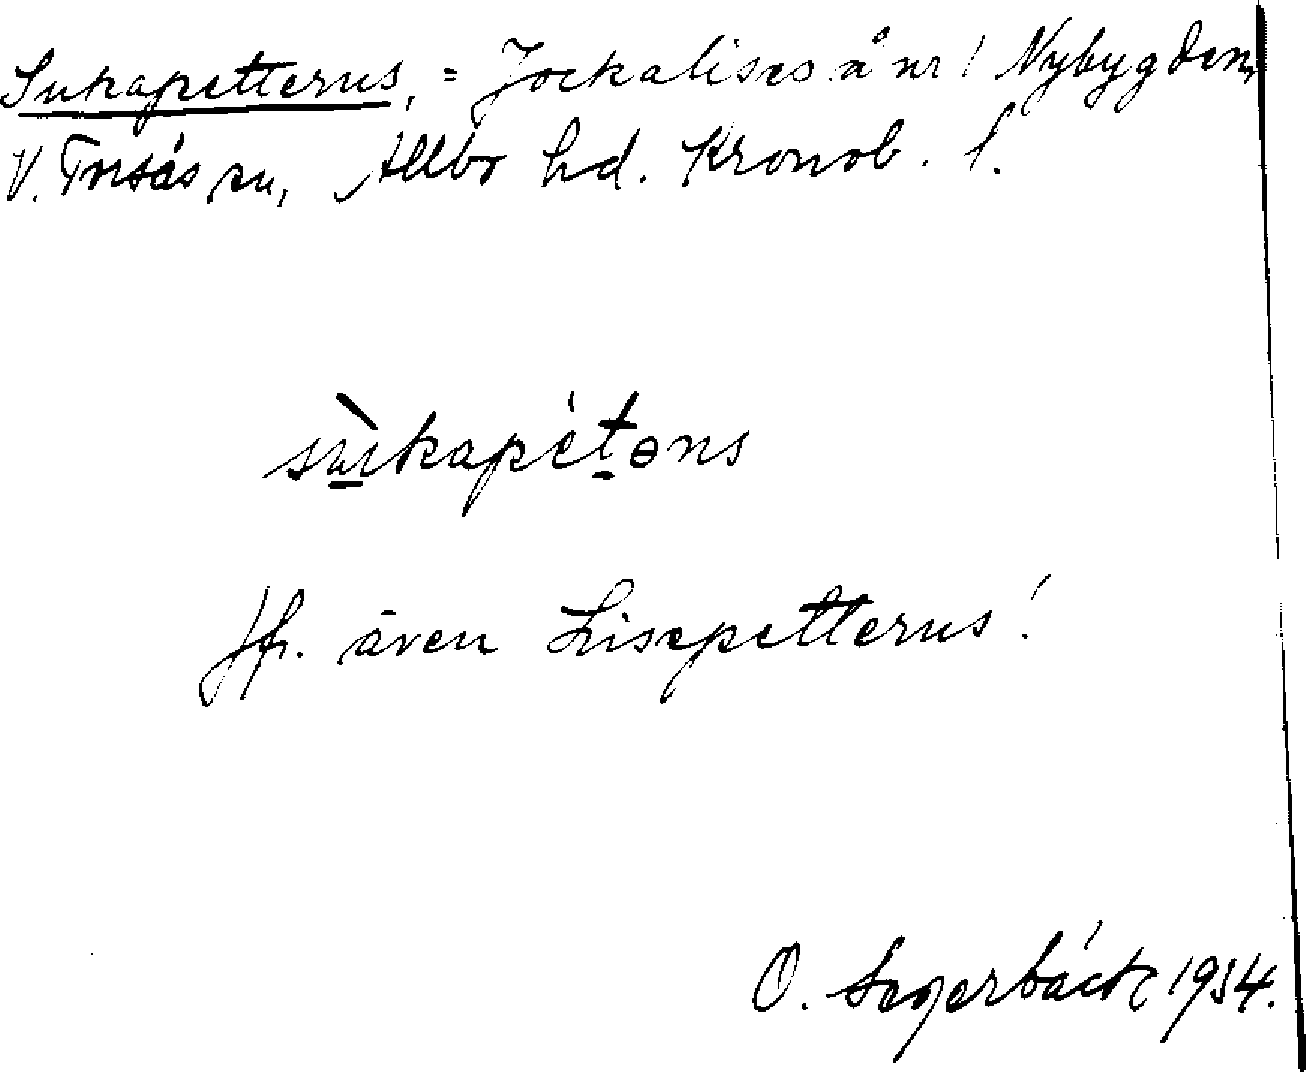 Sukapetterns, = Jockalises å nr 1 Nybygden,
V. Torsås sn, Allbo hd. Kronob. l.
sukapètəns
Jfr. även Lisepetterns!
O. Segerbäck 1934.